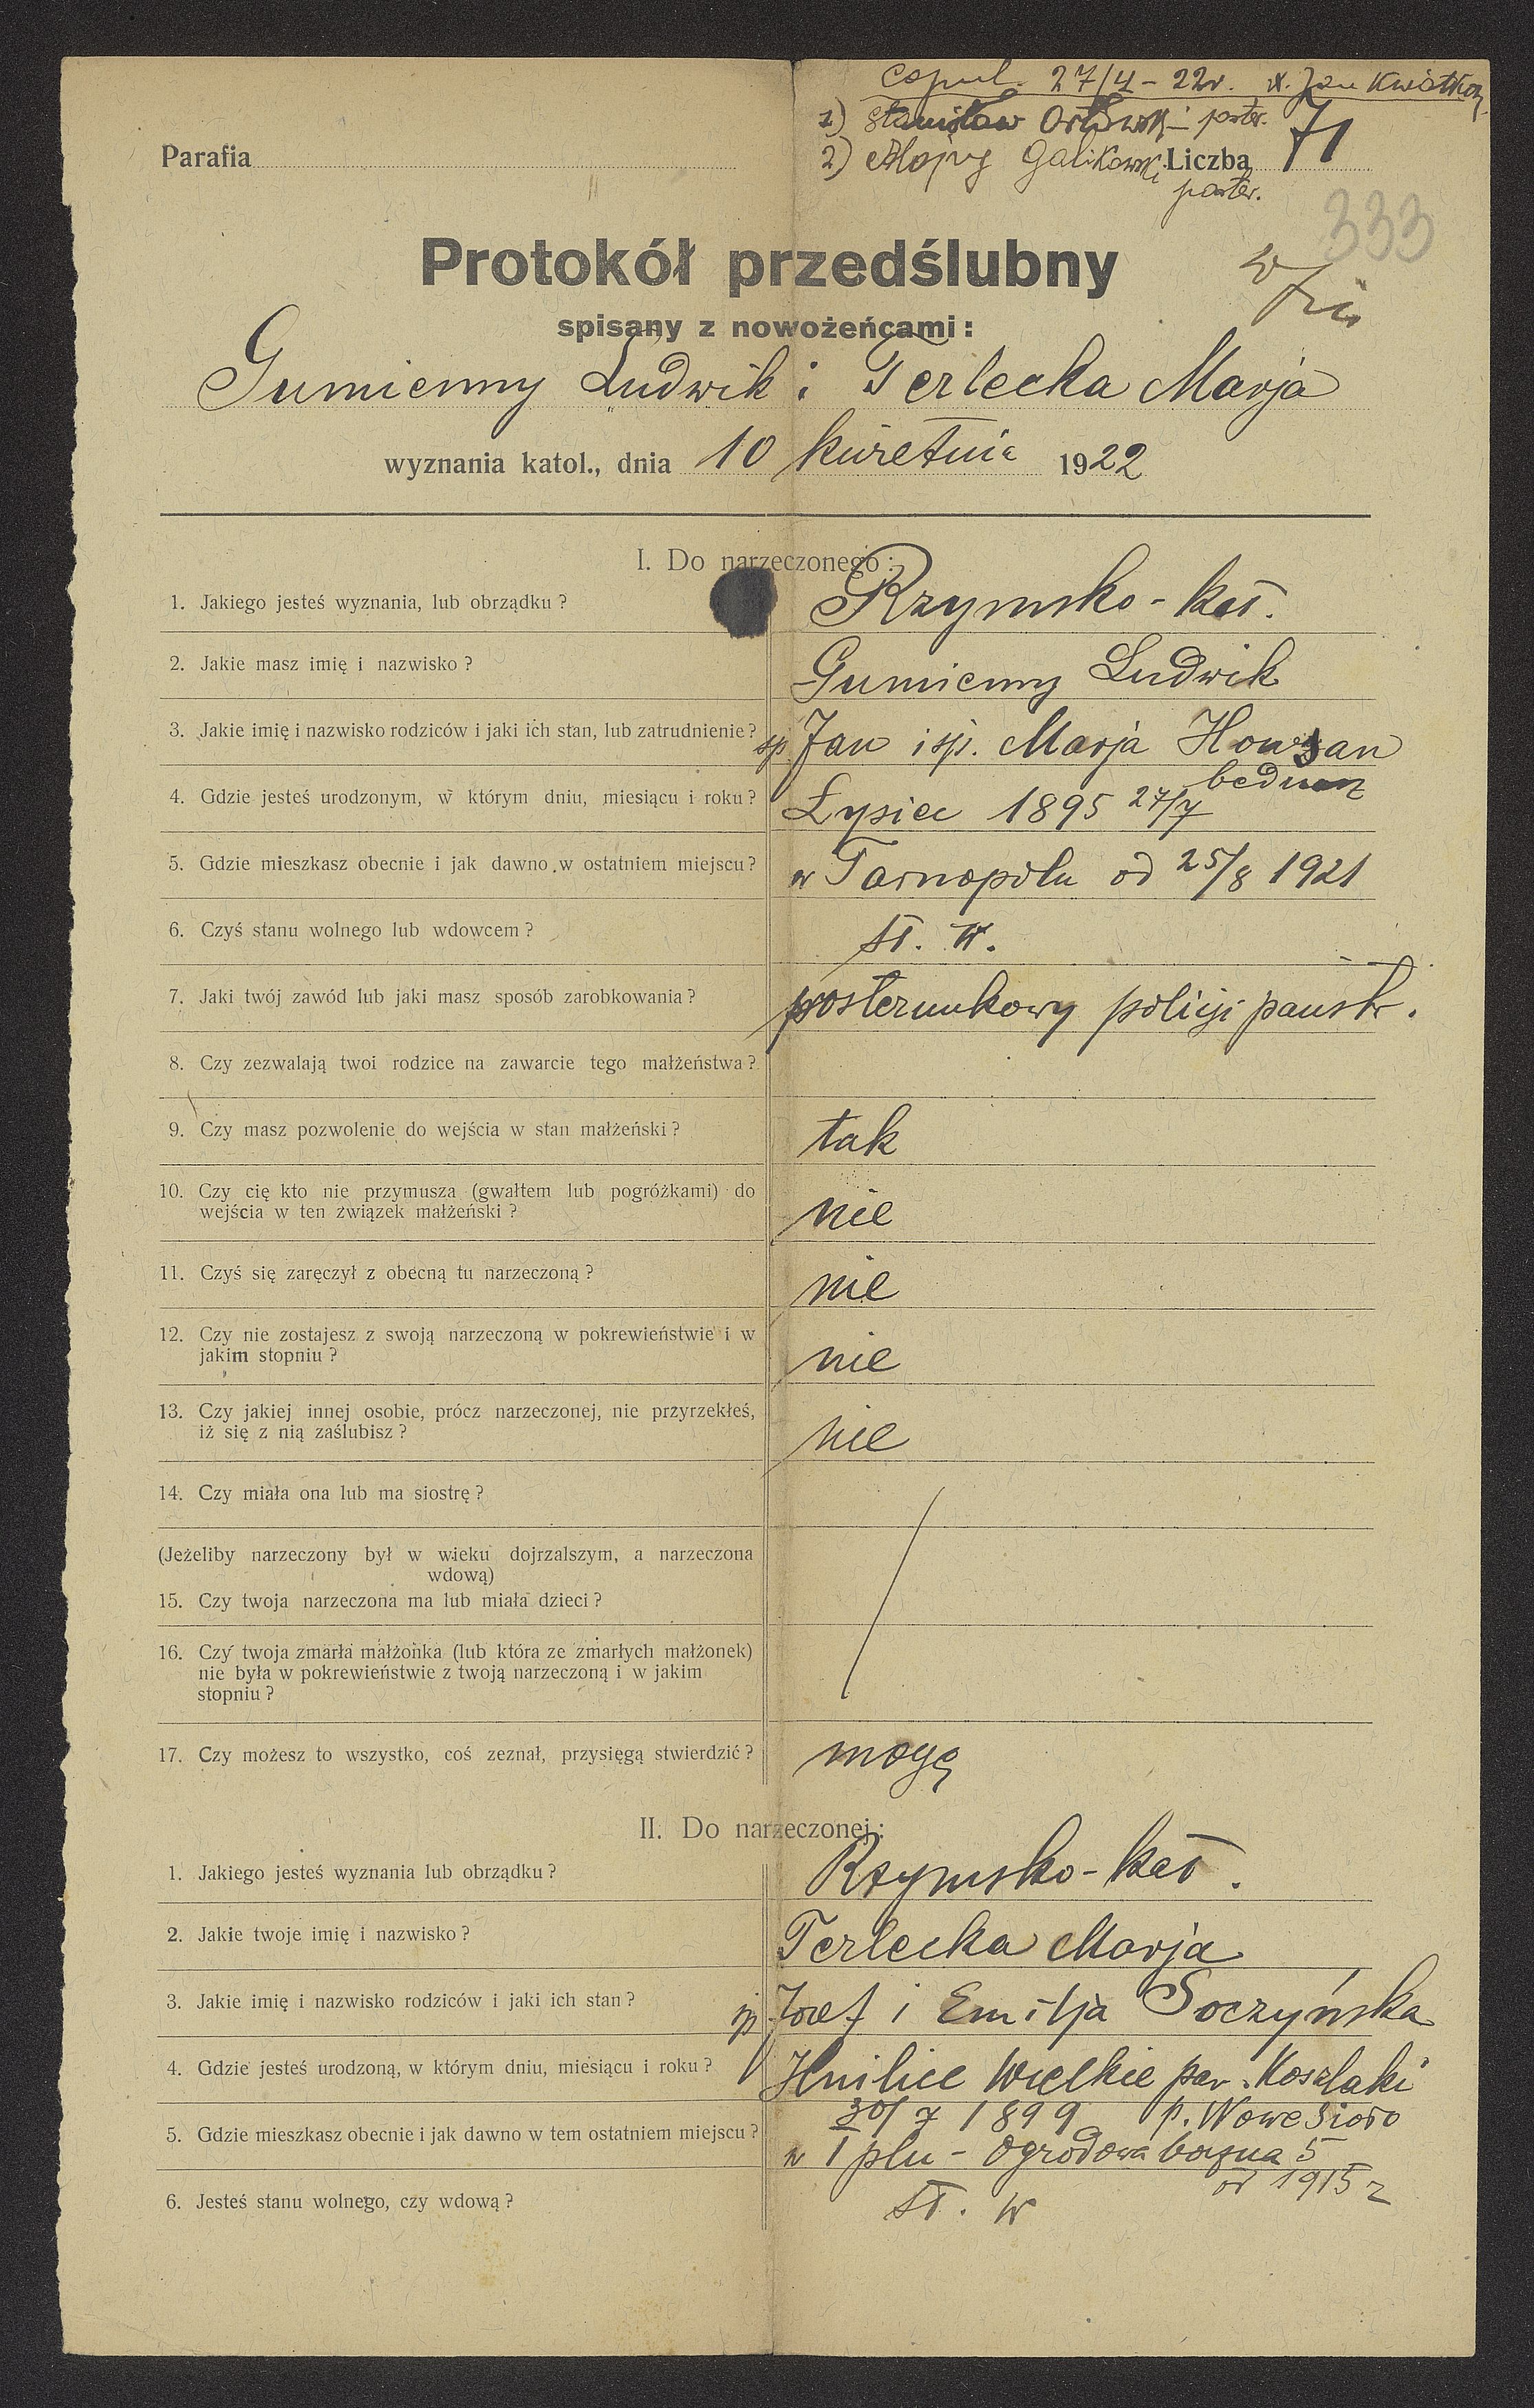 copul. 27/4 - 22r. X. Jan Kwiatkow
1) Stanisław Orłowski - poster.
2) Alojzy Galikowski poster.
Parafia
Liczba 71
333
Protokół przedślubny
spisany z nowożeńcami:
Gumienny Ludwik i Terlecka Marja
wyznania katol., dnia 10 kwietnia 1922
I. Do narzeczonego:
1. Jakiego jesteś wyznania, lub obrządku? Rzymsko-kat.
2. Jakie masz imię i nazwisko? Gumienny Ludwik
3. Jakie imię i nazwisko rodziców i jaki ich stan, lub zatrudnienie? śp Jan i śp. Marja
4. Gdzie jesteś urodzonym, w którym dniu, miesiącu i roku? Łysiec 1895 27/7
5. Gdzie mieszkasz obecnie i jak dawno w ostatniem miejscu? w Tarnopolu od 25/8 1921
6. Czyś stanu wolnego lub wdowcem? st. w.
7. Jaki twój zawód lub jaki masz sposób zarobkowania? posterunkowy policji państw.
8. Czy zezwalają twoi rodzice na zawarcie tego małżeństwa?
9. Czy masz pozwolenie do wejścia w stan małżeński? tak
10. Czy cię kto nie przymusza (gwałtem lub pogróżkami) do
wejścia w ten związek małżeński? nie
11. Czyś się zaręczył z obecną tu narzeczoną? nie
12. Czy nie zostajesz z swoją narzeczoną w pokrewieństwie i w
jakim stopniu? nie
13. Czy jakiej innej osobie, prócz narzeczonej, nie przyrzekłeś,
iż się z nią zaślubisz? nie
14. Czy miała ona lub ma siostrę?
(Jeżeliby narzeczony był w wieku dojrzalszym, a narzeczona
wdową)
15. Czy twoja narzeczona ma lub miała dzieci?
16. Czy twoja zmarła małżonka (lub która ze zmarłych małżonek)
nie była w pokrewieństwie z twoją narzeczoną i w jakim
stopniu?
17. Czy możesz to wszystko, coś zeznał, przysięgą stwierdzić? mogę
II. Do narzeczonej:
1. Jakiego jesteś wyznania lub obrządku? Rzymsko-kat.
2. Jakie twoje imię i nazwisko? Terlecka Marja
3. Jakie imię i nazwisko rodziców i jaki ich stan? śp Józef i Emilja Soczyńska
4. Gdzie jesteś urodzoną, w którym dniu, miesiącu i roku? Hnilice Wielkie par. Koszlaki
30/7 1899 p. Nowe Sioło
5. Gdzie mieszkasz obecnie i jak dawno w tem ostatniem miejscu? w Tplu - Ogrodowa boczna 5
od 1915 r
6. Jesteś stanu wolnego, czy wdową? st. w